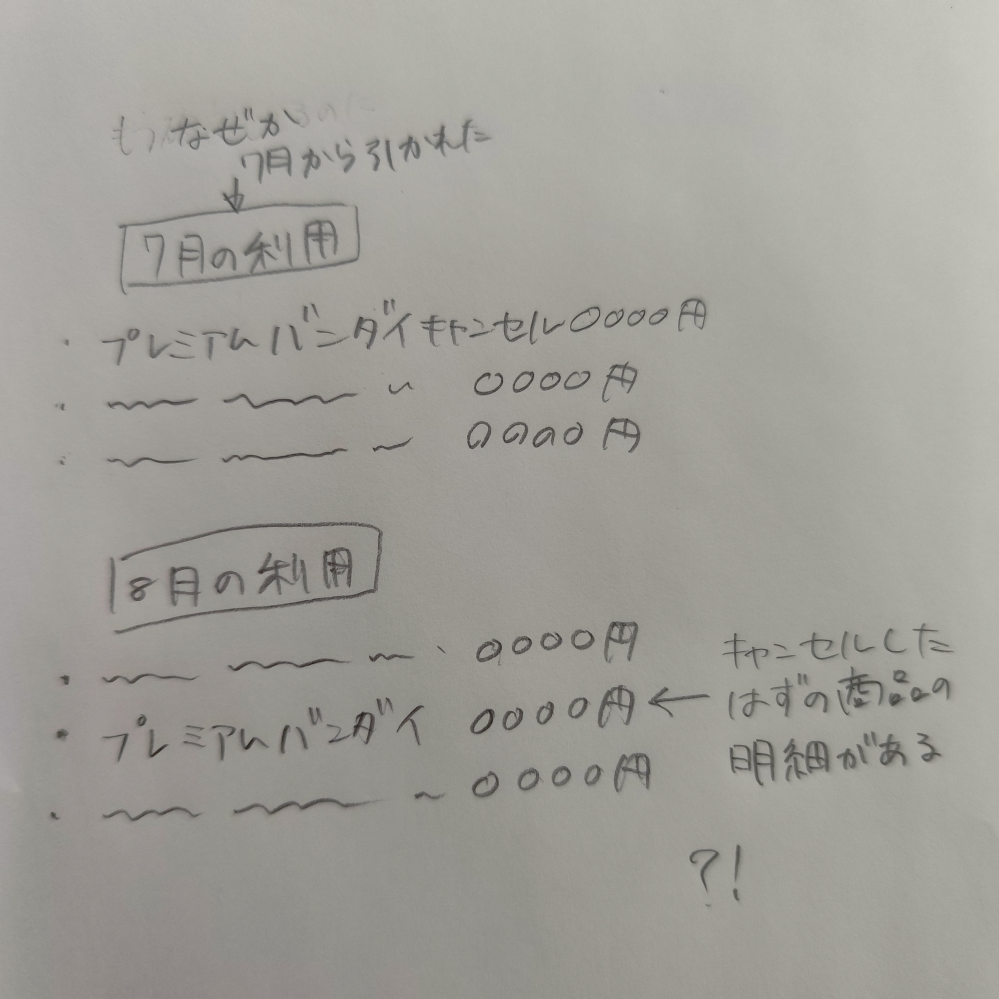 なぜか
7月から引かれた
↓
7月の利用
・プレミアムバンダイキャンセル0000円
・〜〜 〜〜 〃 0000円
・〜〜 〜〜 〜 0000円
8月の利用
・〜〜 〜〜 〜、0000円
・プレミアムバンダイ 0000円 ← キャンセルした
はずの商品の
明細がある
・〜〜 〜〜 〜 0000円
?!